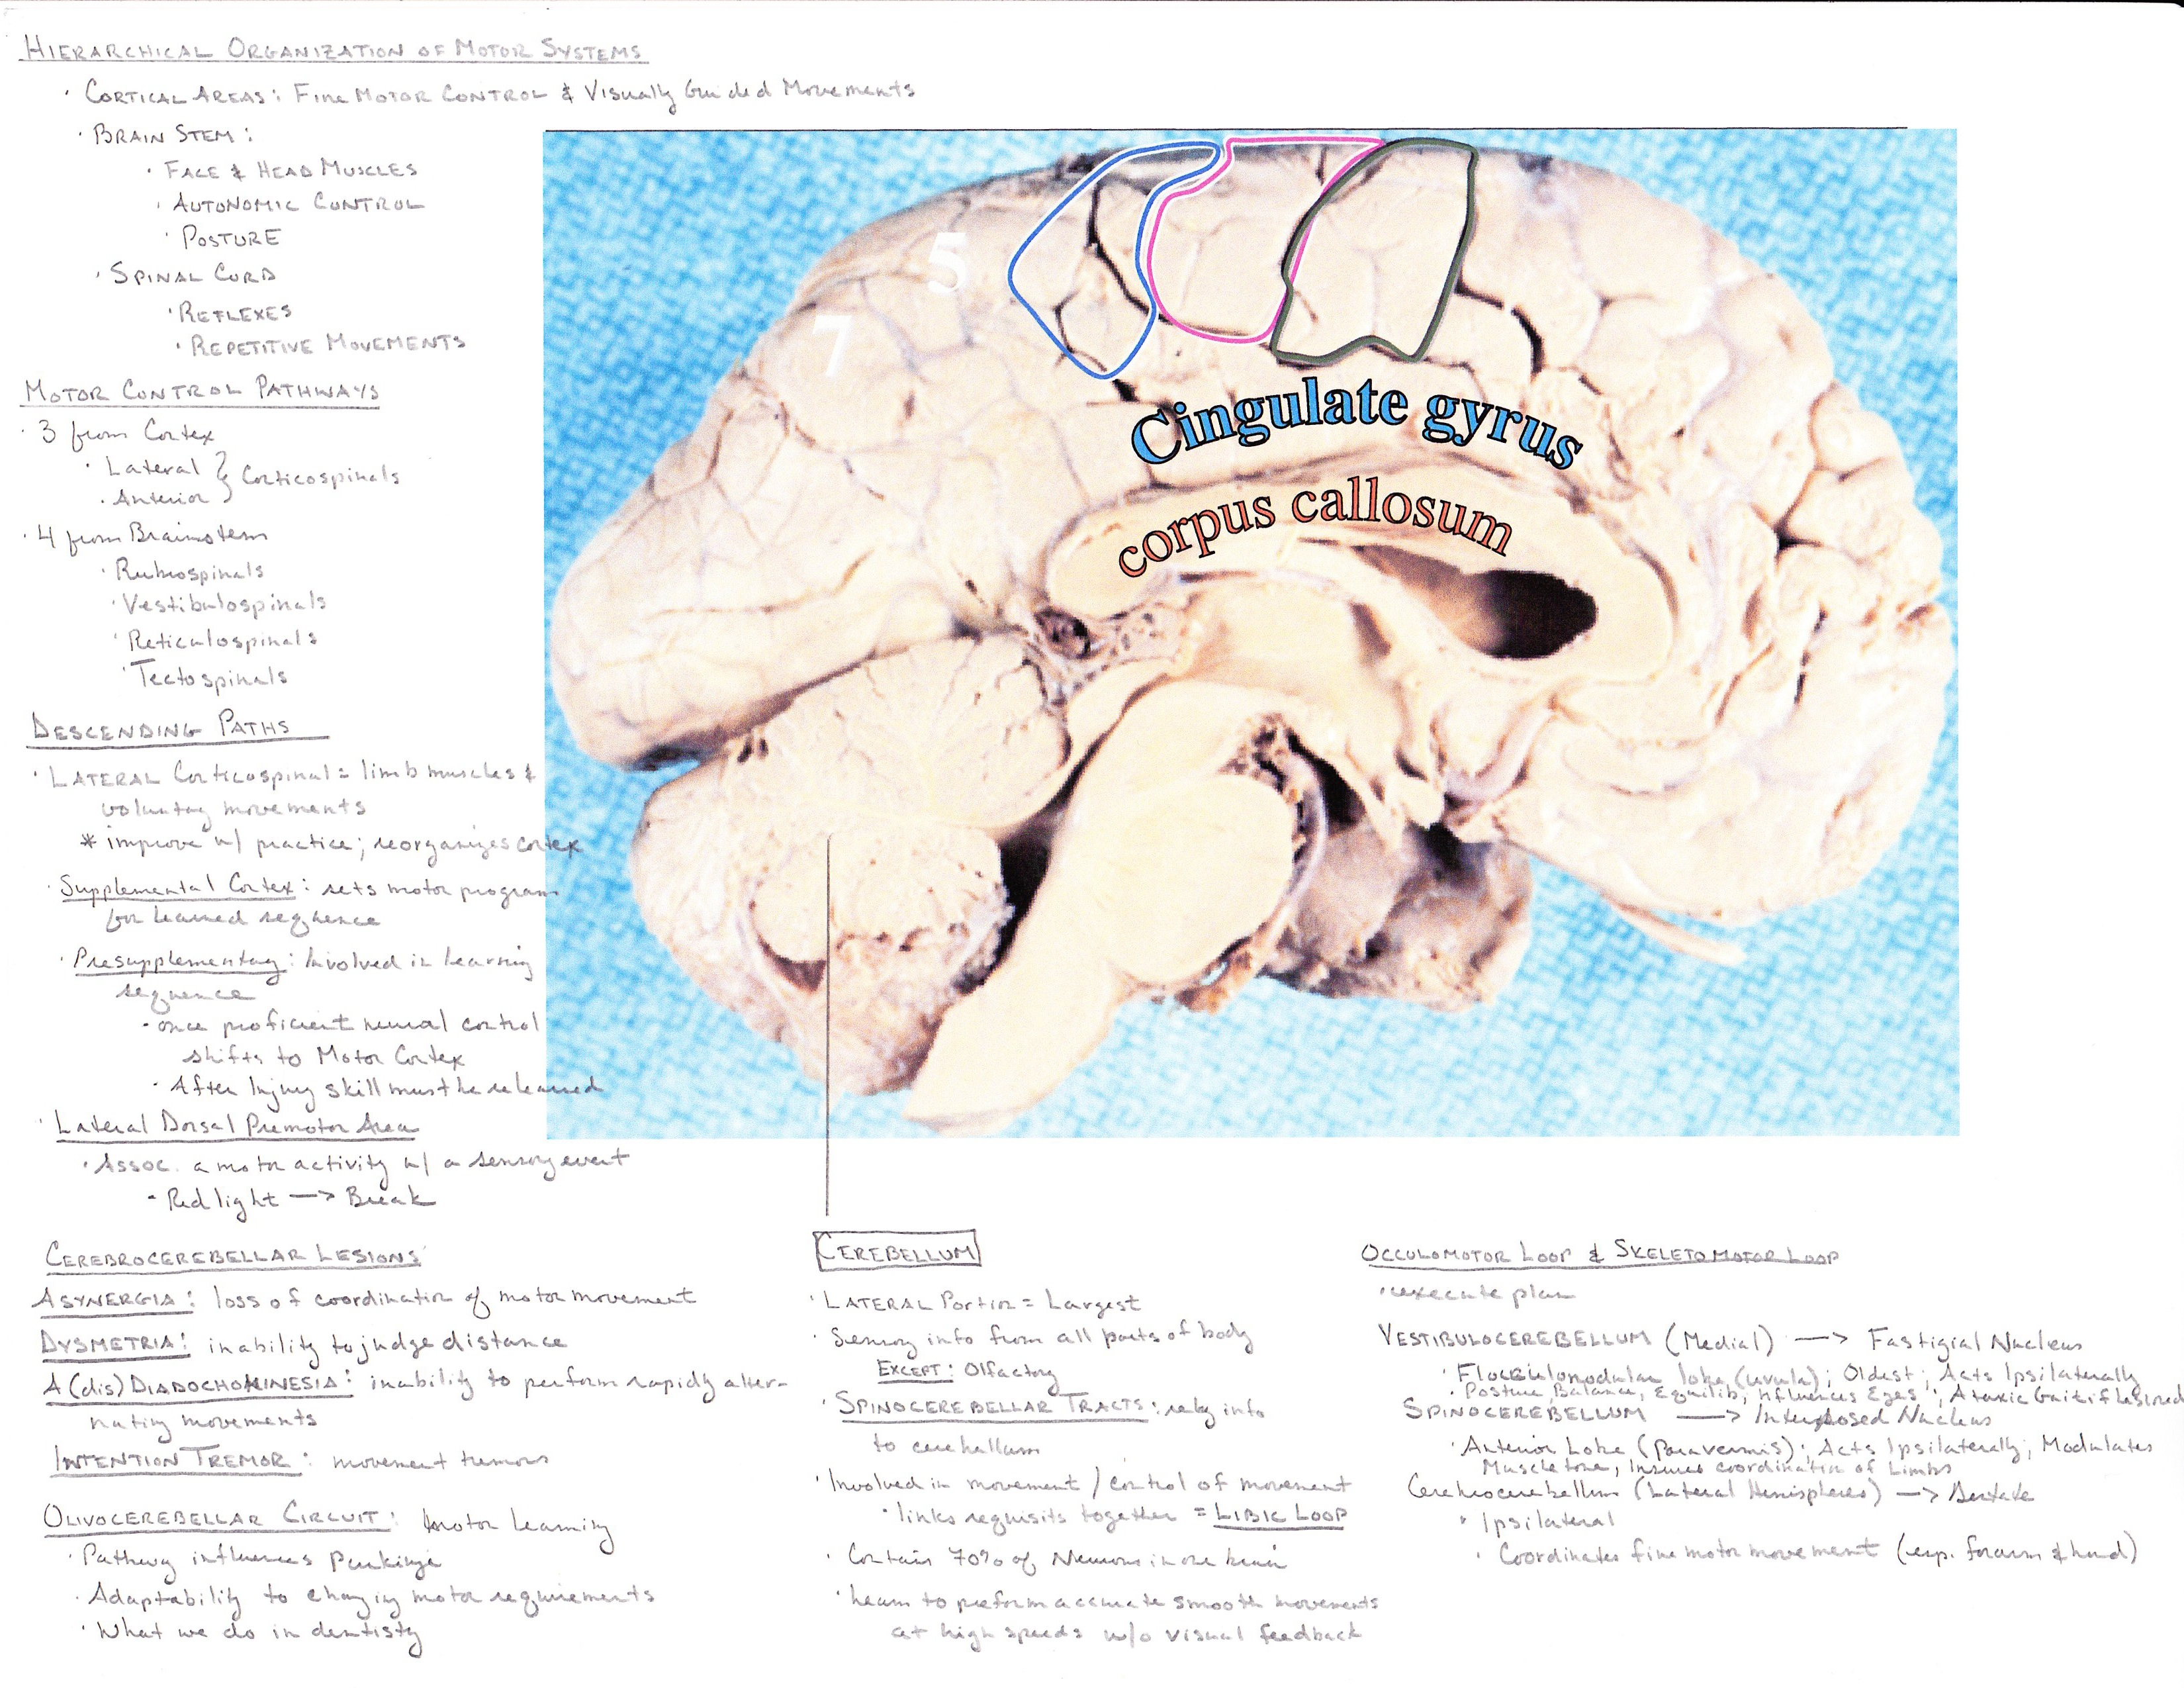 HIERARCHICAL ORGANIZATION OF MOTOR SYSTEMS
· CORTICAL AREAS: Fine MOTOR CONTROL & Visually Guided Movements
· BRAIN STEM:
· FACE & HEAD MUSCLES
· AUTONOMIC CONTROL
· POSTURE
· SPINAL CORD
· REFLEXES
· REPETITIVE MOVEMENTS
MOTOR CONTROL PATHWAYS
· 3 from Cortex
· Lateral } Corticospinals
· Anterior
· 4 from Brainstem
· Rubrospinals
· Vestibulospinals
· Reticulospinals
· Tectospinals
DESCENDING PATHS
· LATERAL Corticospinal = limb muscles &
voluntary movements
* improve w/ practice; reorganizes cortex
· Supplemental Cortex: sets motor program
for learned sequence
· Presupplementary: Involved in learning
sequence
- once proficient neural control
shifts to Motor Cortex
· After Injury skill must be relearned
· Lateral Dorsal Premotor Area
· Assoc. a motor activity w/ a sensory event
- Red light —> Break
5
7
Cingulate gyrus
corpus callosum
CEREBROCEREBELLAR LESIONS
ASYNERGIA: loss of coordination of motor movement
DYSMETRIA: inability to judge distance
A(dis)DIADOCHOKINESIA: inability to perform rapidly alter-
nating movements
INTENTION TREMOR: movement tremors
OLIVOCEREBELLAR CIRCUIT: motor learning
· Pathway influences Purkinje
· Adaptability to changing motor requirements
· What we do in dentistry
CEREBELLUM
· LATERAL Portion = Largest
· Sensory info from all parts of body
EXCEPT: Olfactory
· SPINOCEREBELLAR TRACTS: relay info
to cerebellum
· Involved in movement / control of movement
· links requisits together = LIBIC LOOP
· Contain 70% of Neurons in one brain
· learn to preform accurate smooth movements
at high speeds w/o visual feedback
OCCULOMOTOR LOOP & SKELETOMOTOR LOOP
· execute plan
VESTIBULOCEREBELLUM (Medial) —> Fastigial Nucleus
· Flocculonodular lobe (uvula); Oldest; Acts Ipsilaterally
· Posture, Balance, Equilib, Influences Eyes; Ataxic Gait if lesioned
SPINOCEREBELLUM —> Interposed Nucleus
· Anterior Lobe (Paravermis); Acts Ipsilaterally; Modulates
Muscle tone, Insures coordination of Limbs
Cerebrocerebellum (Lateral Hemispheres) —> Dentate
· Ipsilateral
· Coordinates fine motor movement (esp. forearm & hand)